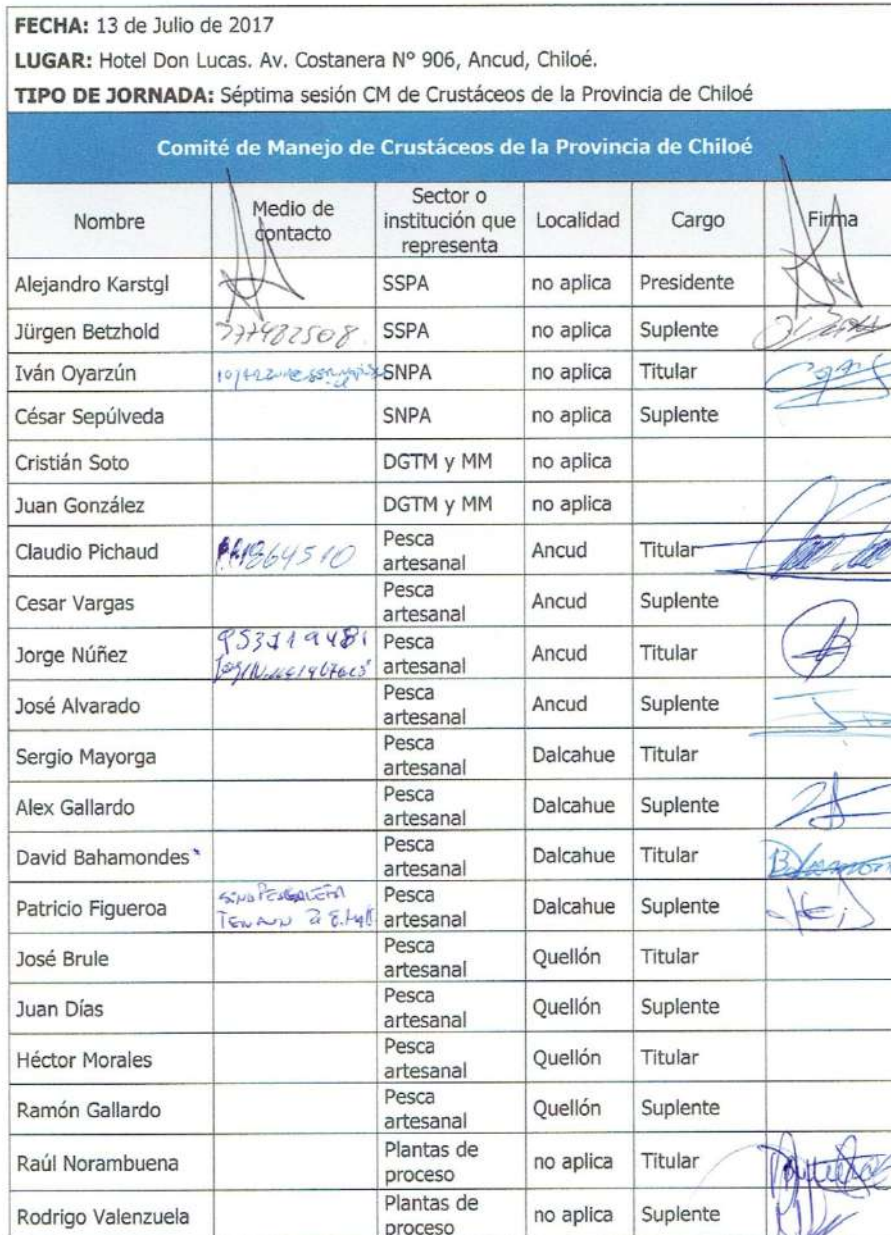 FECHA: 13 de Julio de 2017
LUGAR: Hotel Don Lucas. Av. Costanera Nº 906, Ancud, Chiloé.
TIPO DE JORNADA: Séptima sesión CM de Crustáceos de la Provincia de Chiloé
Comité de Manejo de Crustáceos de la Provincia de Chiloé
Nombre Medio de contacto Sector o institución que representa Localidad Cargo Firma
Alejandro Karstgl SSPA no aplica Presidente
Jürgen Betzhold 777482508 SSPA no aplica Suplente
Iván Oyarzún SNPA no aplica Titular
César Sepúlveda SNPA no aplica Suplente
Cristián Soto DGTM y MM no aplica
Juan González DGTM y MM no aplica
Claudio Pichaud Pesca artesanal Ancud Titular
Cesar Vargas Pesca artesanal Ancud Suplente
Jorge Núñez Pesca artesanal Ancud Titular
José Alvarado Pesca artesanal Ancud Suplente
Sergio Mayorga Pesca artesanal Dalcahue Titular
Alex Gallardo Pesca artesanal Dalcahue Suplente
David Bahamondes Pesca artesanal Dalcahue Titular
Patricio Figueroa Pesca artesanal Dalcahue Suplente
José Brule Pesca artesanal Quellón Titular
Juan Días Pesca artesanal Quellón Suplente
Héctor Morales Pesca artesanal Quellón Titular
Ramón Gallardo Pesca artesanal Quellón Suplente
Raúl Norambuena Plantas de proceso no aplica Titular
Rodrigo Valenzuela Plantas de proceso no aplica Suplente